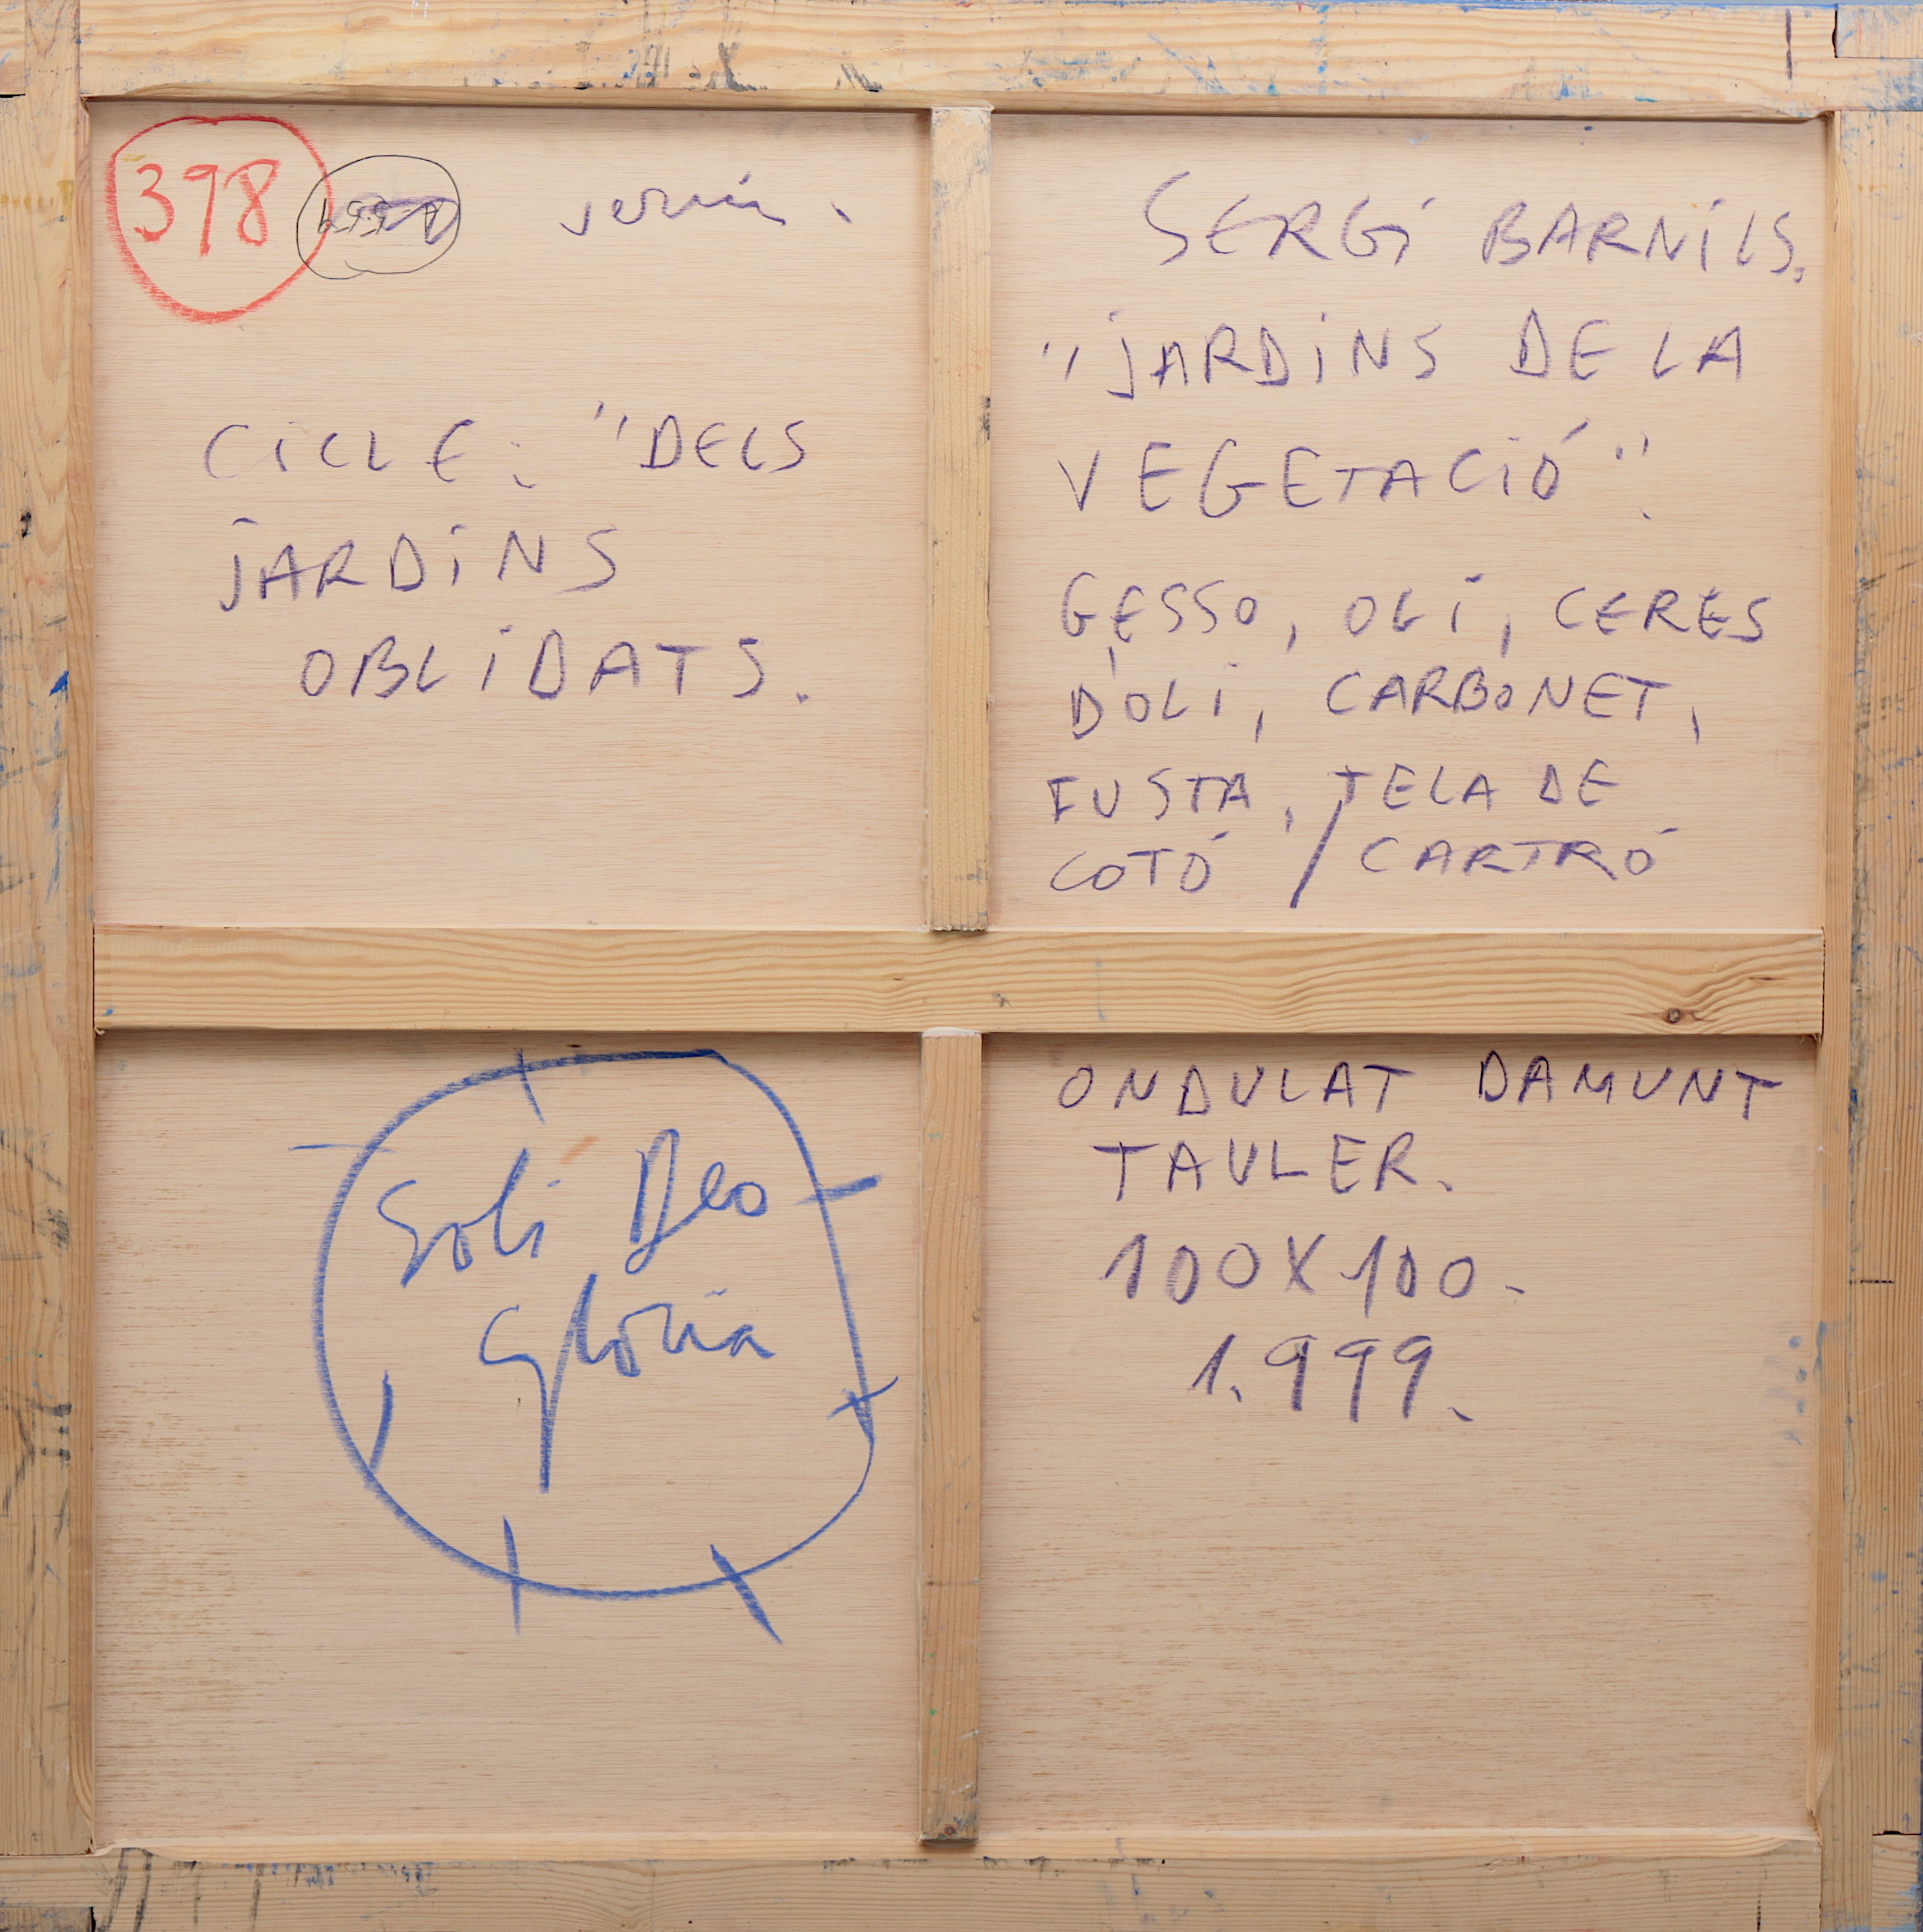 398
CICLE: "DELS
JARDINS
OBLIDATS.
SERGI BARNILS.
"JARDINS DE LA
VEGETACIÓ".
GESSO, OLI, CERES
D'OLI, CARBONET,
FUSTA, TELA DE
COTÓ / CARTRÓ
Soli Deo
Gloria
ONDULAT DAMUNT
TAULER.
100X100.
1.999.